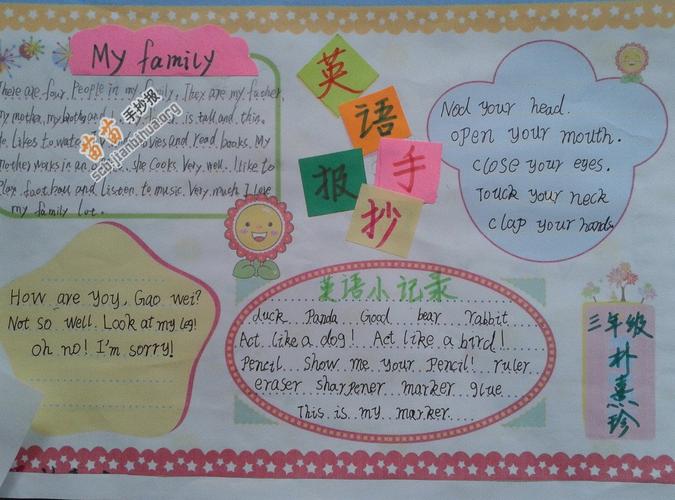 My family
There are four People in my family. They are my father,
my mother, my brother and is tall and thin.
He Likes to watch movies and read books. My
mother works in an she Cooks Very Well. I Like to
Play football and Listen to music. Very much I Love
my family Lot.
苗苗手抄报
英
语
手
报
抄
Nod your head.
open your mouth.
close your eyes.
Touck your neck
clap your hands
How are you, Gao wei?
Not so well. Look at my leg!
oh no! I'm sorry!
英语小记录
duck Panda Good bear rabbit
Act like a dog! Act like a bird!
Pencil Show me Your Pencil! ruler
eraser sharpener marker glue
This is my marker
三年级
朴熹珍